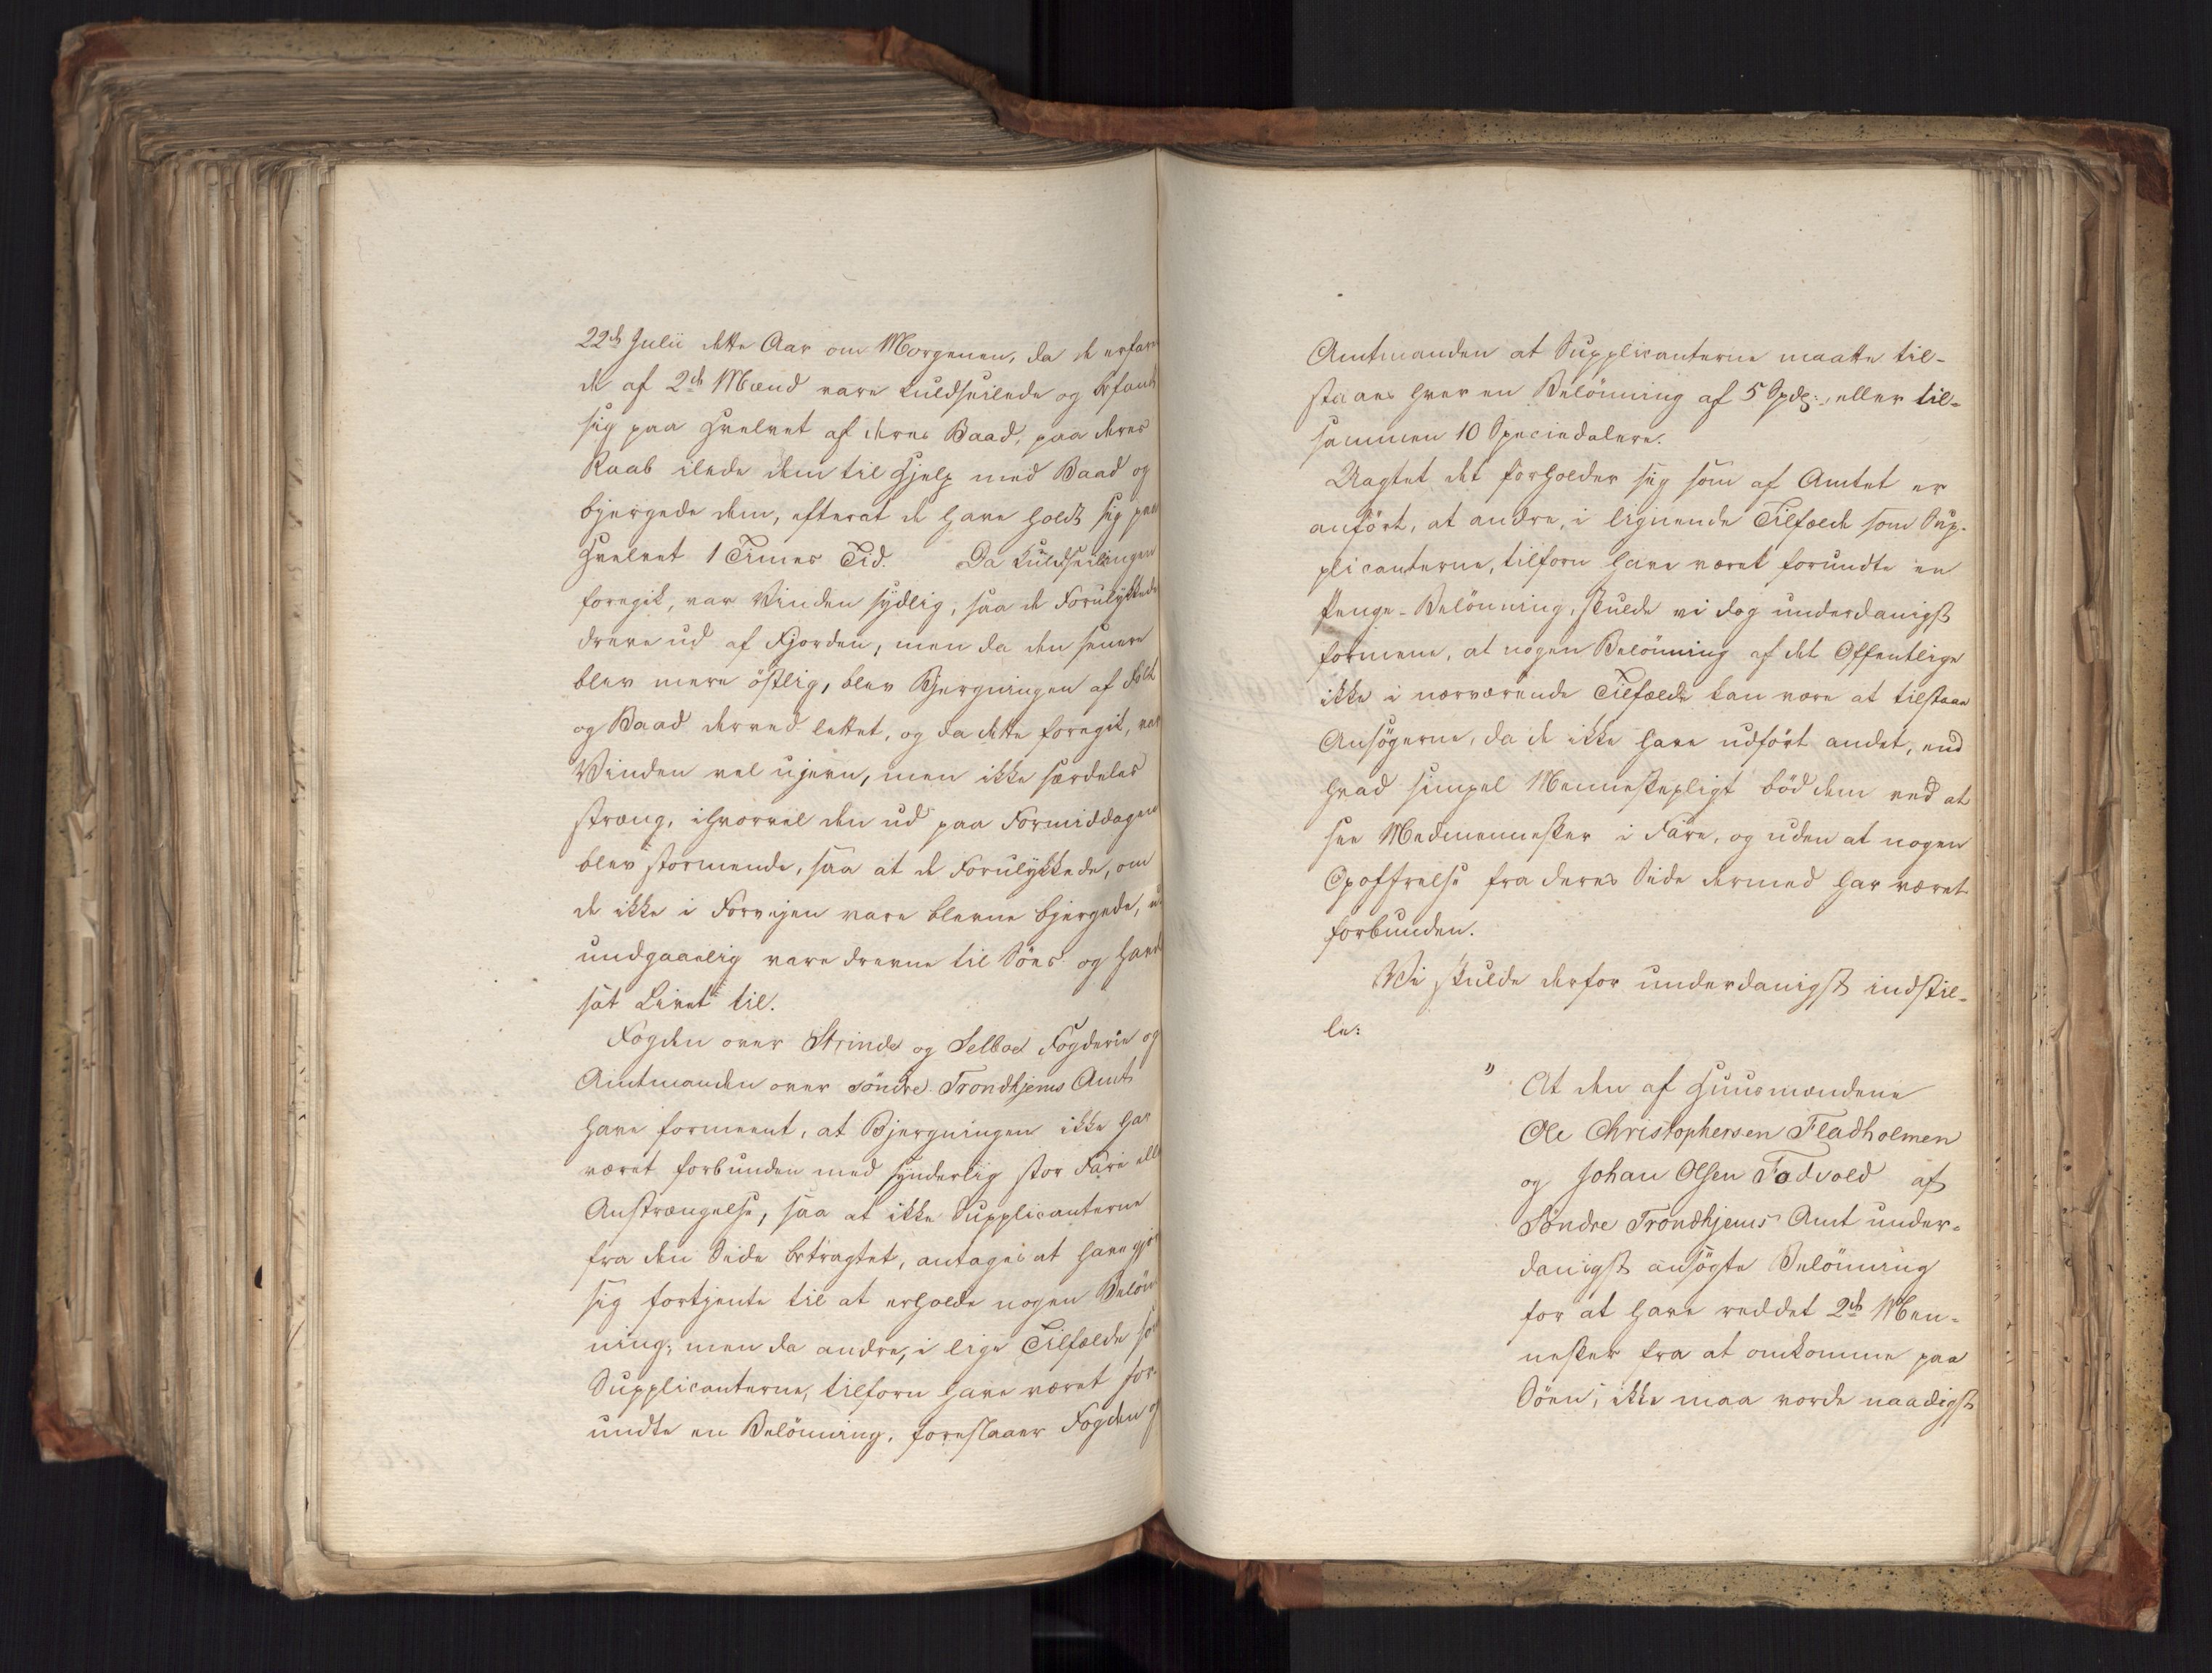 22de Julii dette Aar om Morgenen, da de erfare
de af 2de Mænd vare kuldseilede og befandt
sig paa Hvelvet af deres Baad, paa deres
Raab ilede dem til Hjelp med Baad og
bjergede dem, efterat de have holdt sig paa
Hvelvet 1 Times Tid. Da Kuldseilingen
foregik, var Vinden sydlig, saa de Forulykkede
dreve ud af Fjorden, men da den senere
blev mere östlig, blev Bjergningen af Folk
og Baad derved lettet, og da dette foregik, var
Vinden vel ujevn, men ikke særdeles
stræng, ihvorvel den ud paa Formiddagen
blev stormende, saa at de Forulykkede, om
de ikke i Forvejen vare blevne bjergede, u
undgaaelig vare drevne til Söes og havde
sat Livet til.
Fogden over Strinde og Selboe Fogderie og
Amtmanden over söndre Trondhjems Amt
have formeent, at Bjergningen ikke har
været forbunden med synderlig stor Fare elle
Anstrængelse, saa at ikke Supplicanterne
fra den Side betragtet, antages at have gjort
sig fortjente til at erholde nogen Belön
ning; men da andre, i lige Tilfælde som
Supplicanterne, tilforn have været for-
undte en Belönning, foreslaaer Fogden og
Amtmanden at Supplicanterne maatte til-
staaes hver en Belönning af 5 Spdlr., eller til-
sammen 10 Speciedalere.
Uagtet det forholder sig som af Amtet er
anfört, at andre, i lignende Tilfælde som Sup-
plicanterne, tilforn have været forundte en
Penge-Belönning, skulde vi dog underdanigst
formene, at nogen Belönning af det Offentlige
ikke i nærværende Tilfælde kan være at tilstaae
Ansögerne, da de ikke have udfört andet, end
hvad simpel Menneskepligt böd dem ved at
see Medmennesker i Fare, og uden at nogen
Opoffrelse fra deres Side dermed har været
forbunden.
Vi skulde derfor underdanigst indstil-
le:
" At den af Huusmændene
Ole Christophersen Fladholmen
og Johan Olsen Fadvold af
Söndre Trondhjems Amt under-
danigst ansögte Belönning
for at have reddet 2de Men-
nesker fra at omkomme paa
Söen, ikke maa vorde naadigst